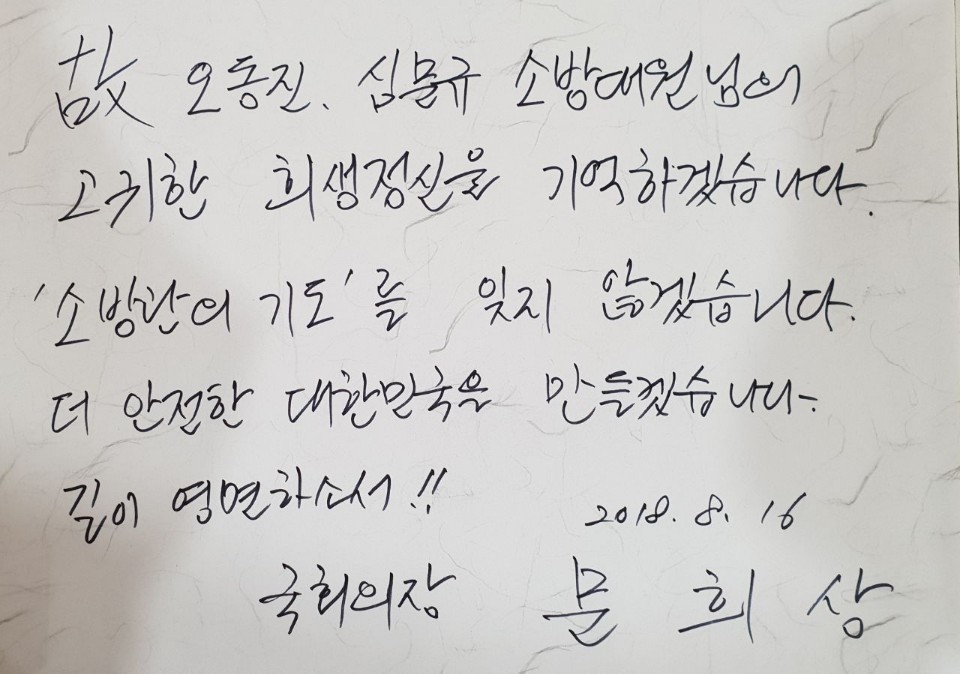 故 오동진. 심문규 소방대원님의
고귀한 희생정신을 기억하겠습니다.
'소방관의 기도'를 잊지 않겠습니다.
더 안전한 대한민국을 만들겠습니다.
길이 영면하소서!!
2018. 8. 16
국회의장 문 희 상